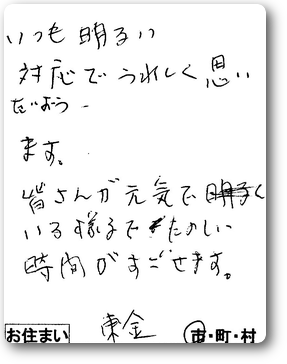 いつも明るい
対応でうれしく思い
ます。
皆さんが元気で明るく
いる様子でたのしい
時間がすごせます。
お住まい 東金 市・町・村